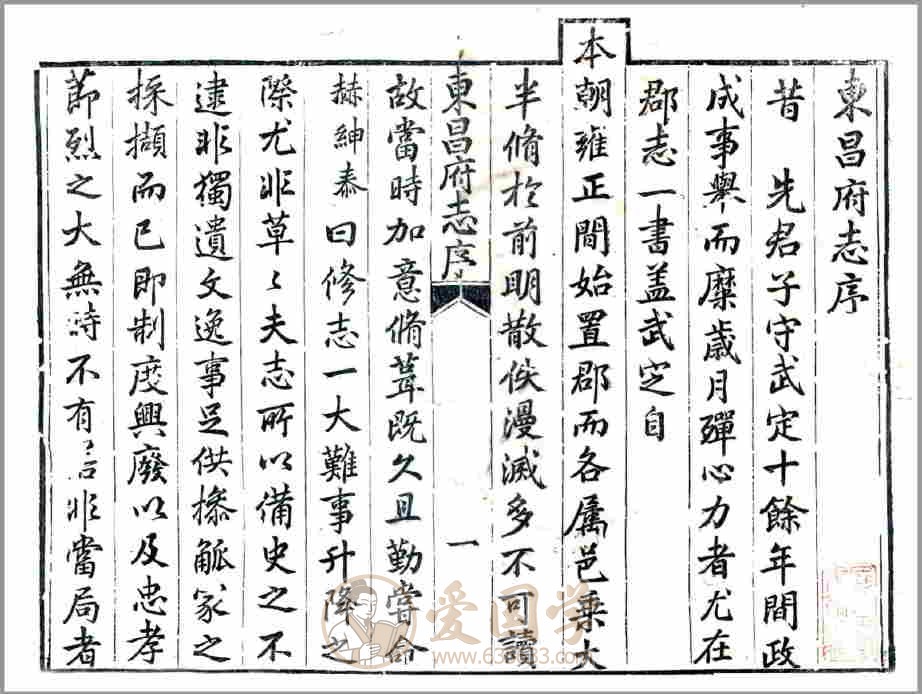 東昌府志序
昔 先君子守武定十餘年間政
成事舉而糜歲月殫心力者尤在
郡志一書盖武定自
本朝雍正間始置郡而各属邑乘大
半脩於前明散佚漫滅多不可讀
東昌府志序
一
故當時加意脩葺既久且勤嘗命
赫紳泰曰修志一大難事升降之
際尤非草〻夫志所以備史之不
逮非獨遺文逸事足供操觚家之
採擷而已即制度興廢以及忠孝
節烈之大無時不有 非當局者
爱国学
www.